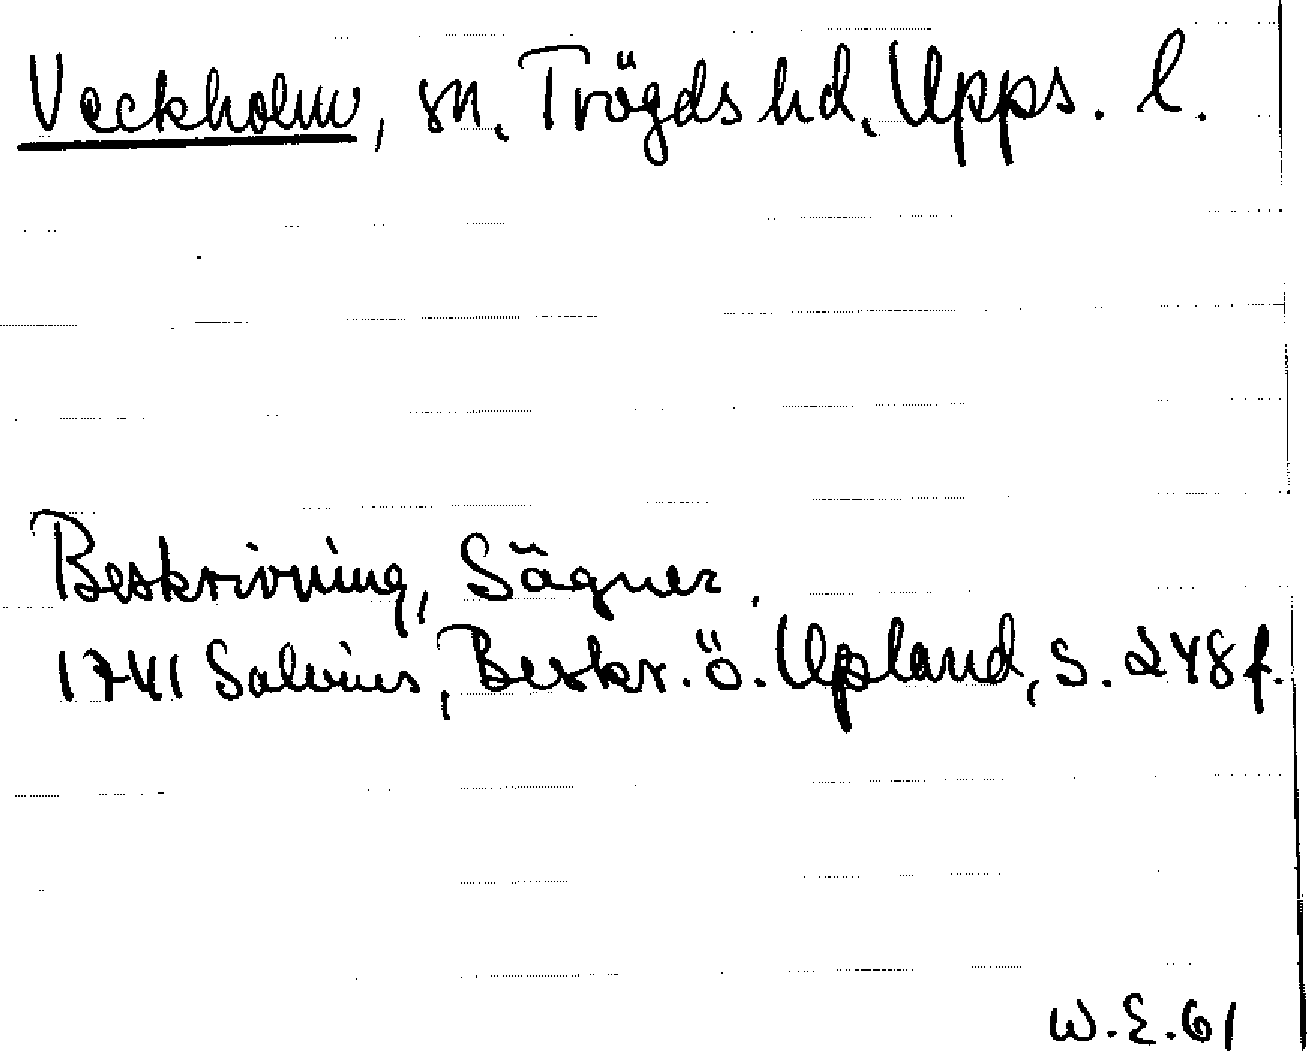 Veckholm, sn. Trögds hd, Upps. l.
Beskrivning, Sägner.
1741 Salvius, Beskr. ö. Upland, s. 248 f.
W.E.61